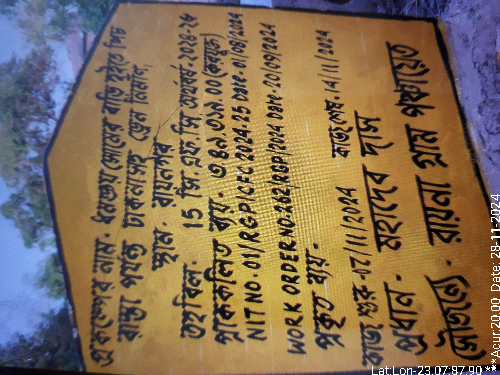 প্রকল্পের নাম - ধনঞ্জয় ঘোষের বাড়ি হইতে পিচ
রাস্তা পর্যন্ত ঢাকনাসহ ড্রেন নির্মান,
স্থান - রায়নগর
তহবিল - 15 সি এফ সি অর্থবর্ষ - ২০২৪-২৫
প্রাক্কলিত ব্যয় - ৩৪৯৩১৯.00 (করযুক্ত)
NIT NO. 01/RGP/CFC 2024-25 Date - 01/08/2024
WORK ORDER NO: 262/RGP/2024 Date - 20/09/2024
প্রকৃত ব্যয় -
কাজ শুরু - 07/11/2024 কাজ শেষ - 14/11/2024
প্রধান - মহাদেব দাস
সৌজন্যে - রায়না গ্রাম পঞ্চায়েত
Lat Lon-23.07.87.90
***Acur:2000 Date: 28-11-2024